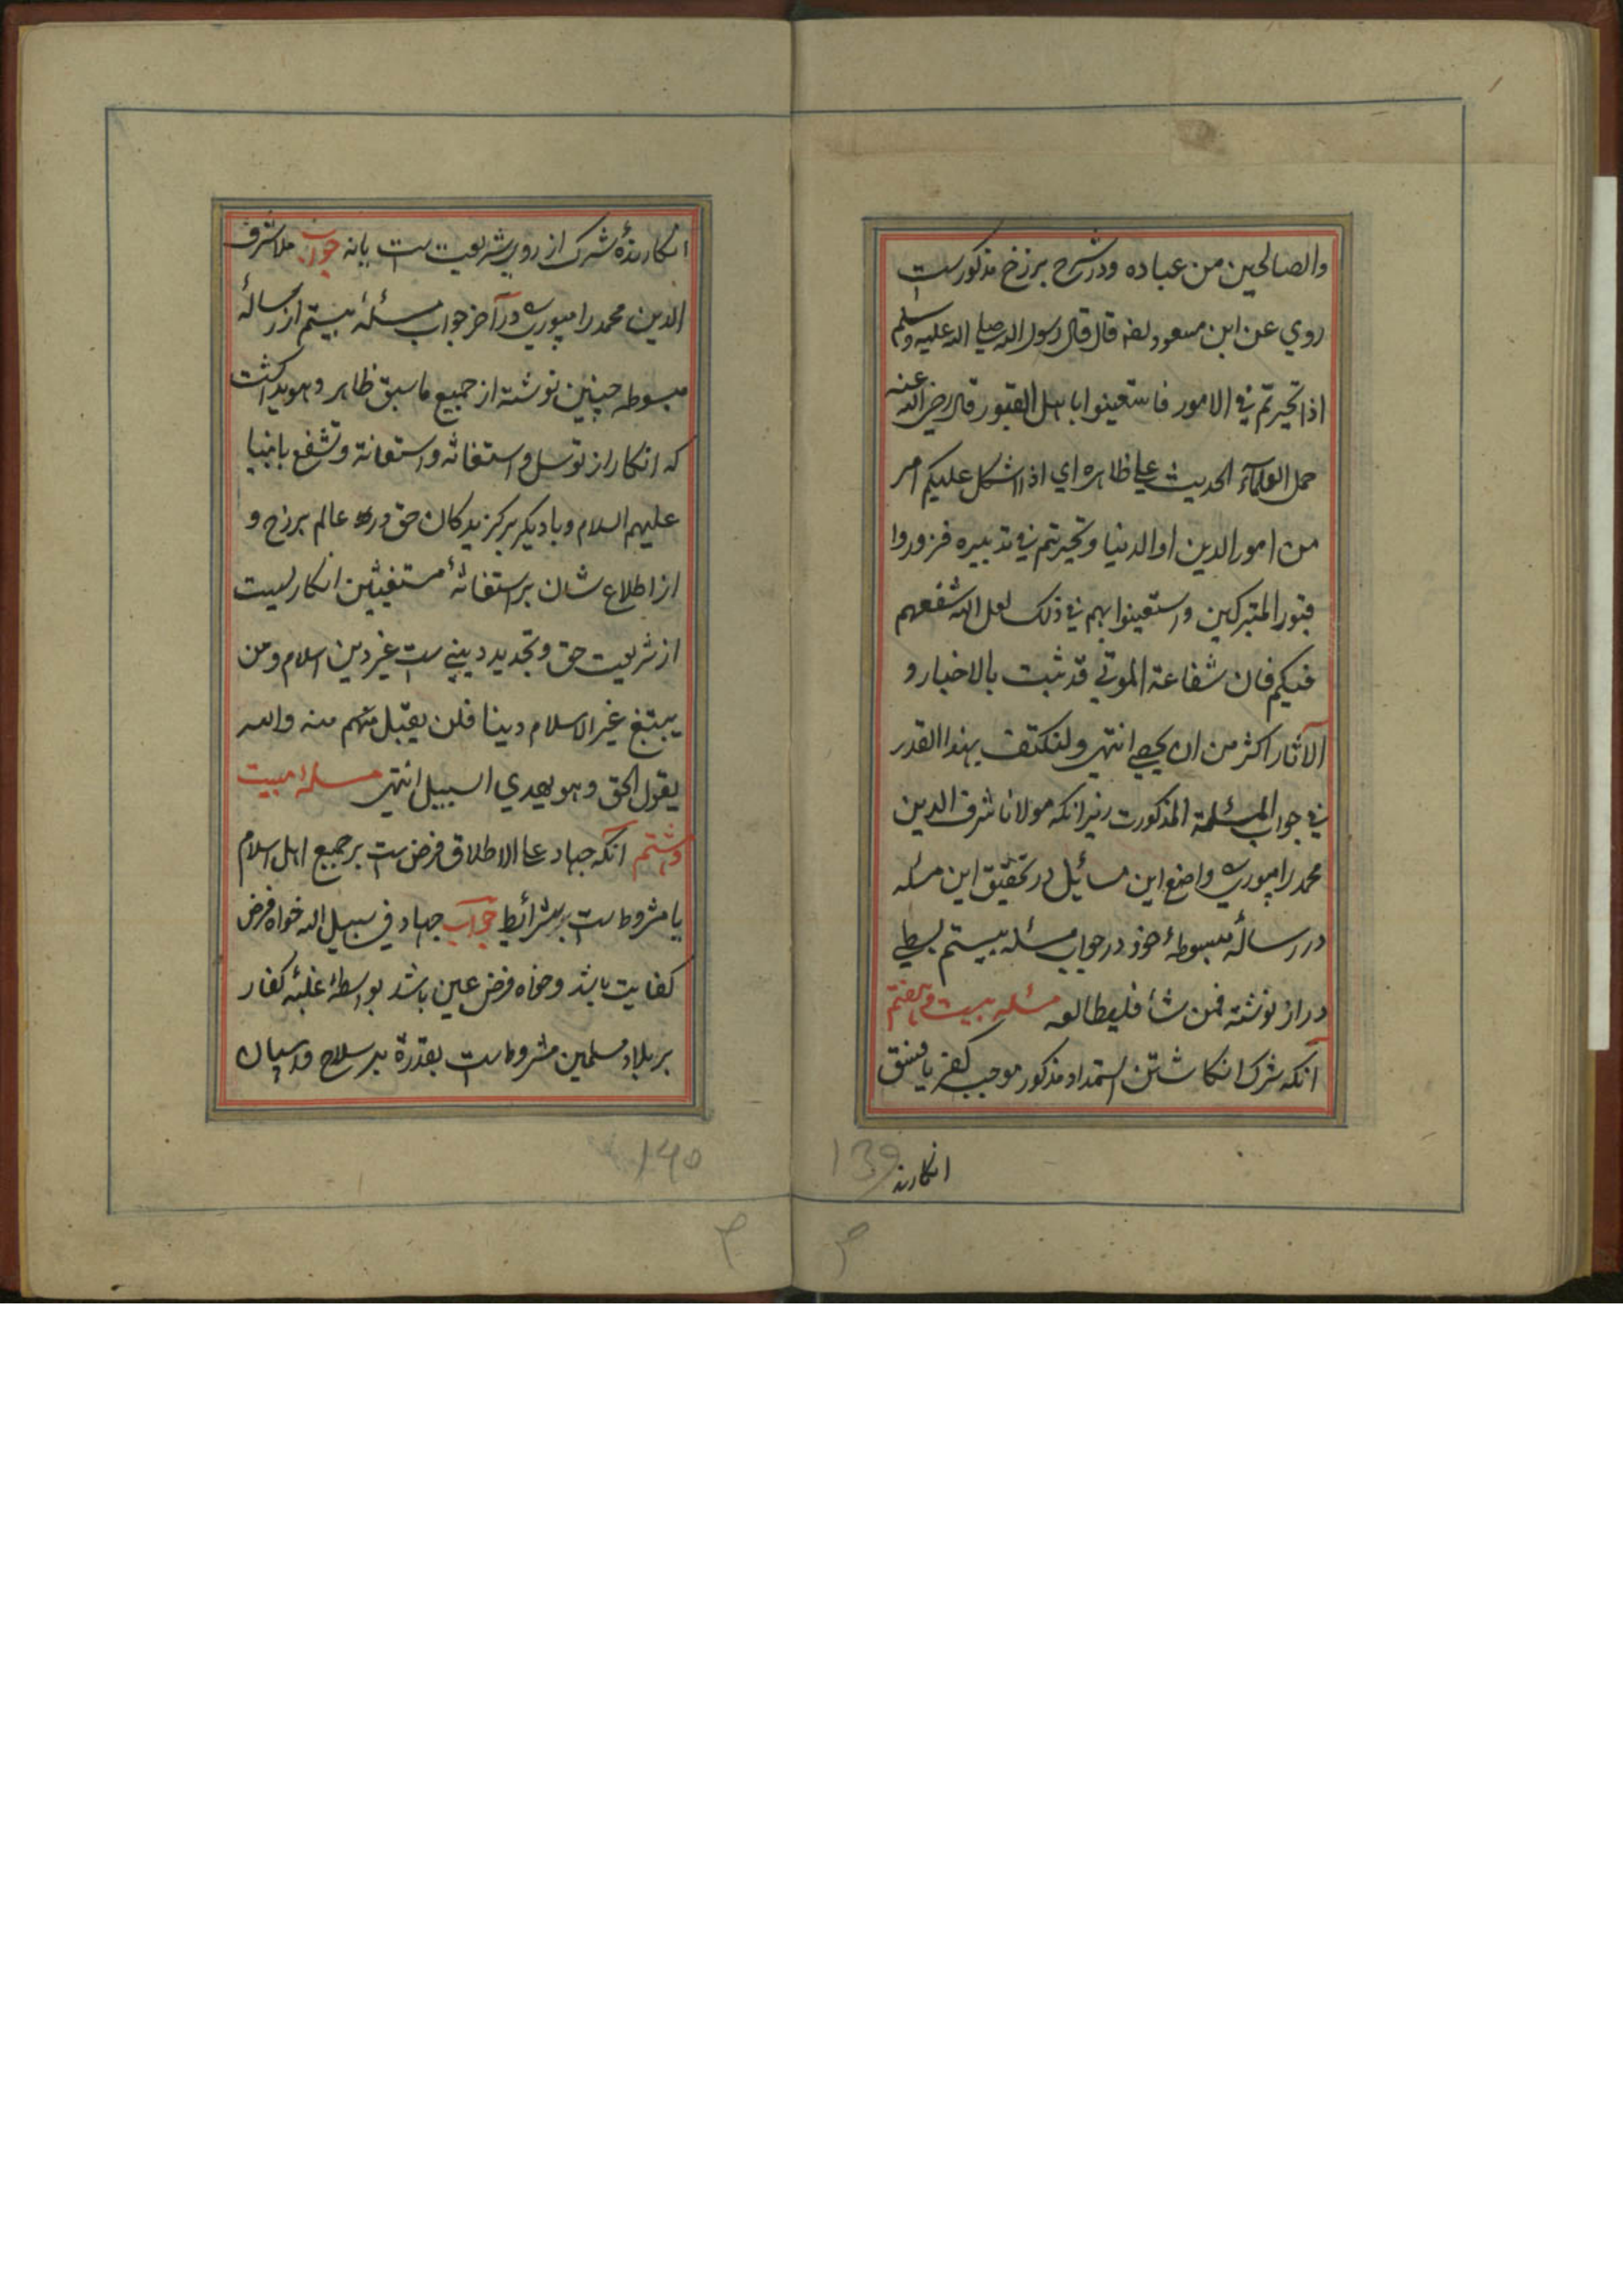 والصالحين من عباده ودر شرح برزخ مذكورست
روي عن ابن مسعود رضه قال قال رسول الله صلي الله عليه وسلم
اذا تحيرتم في الامور فاستعينوا باهل القبور قال رضي الله عنه
حمل العلمآء الحديث علي ظاهره اي اذا اشكل عليكم امر
من امور الدين او الدنيا وتحيرتم في تدبيره فزوروا
قبور المتبركين واستعينوا بهم في ذلك لعل الله شفعهم
فيكم فان شفاعة الموتي قد ثبت بالاخبار و
الآثار اكثر من ان يحصي انتهي ولنكتف بهذا القدر
في جواب المسئلة المذكورت زيرانكه مولانا شرف الدين
محمد رامپوري واضع اين مسائيل در تحقيق اين مسئله
در رسالۀ مبسوطۀ خود در جواب مسئله بيستم بسطي
دراز نوشته فمن شأ فليطالعه مسئله بيست و هفتم
آنكه شرك انكاشتن استمداد مذكور موجب كفر يا فسق
انكارند
139
انكارندۀ شرك از روي شريعت ست يا نه جواب ملا شرف
الدين محمد رامپوري در آخر جواب مسئلۀ بيستم از رسالۀ
مبسوطه چنين نوشته از جميع ما سبق ظاهر و هويدا كشت
كه انكار از توسل و استغاثه و استعانة و تشفع بانبيا
عليهم السلام و با ديكر بركزيدكان حق در عالم برزخ و
از اطلاع شان بر استغاثۀ مستغيثين انكاريست
از شريعت حق و تجديد ديني ست غير دين اسلام و من
يبتغ غير الاسلام دينا فلن يقبل منهم منه والله
يقول الحق وهو يهدي السبيل انتهي مسئلۀ بيست
و هشتم آنكه جهاد علي الاطلاق فرض ست بر جميع اهل اسلام
يا مشروط ست بر شرائيط جواب جهاد في سبيل الله خواه فرض
كفايت باشد و خواه فرض عين باشد بواسطۀ غلبۀ كفار
بر بلاد مسلمين مشروط ست بقدرة بر سلاح و اسپان
140